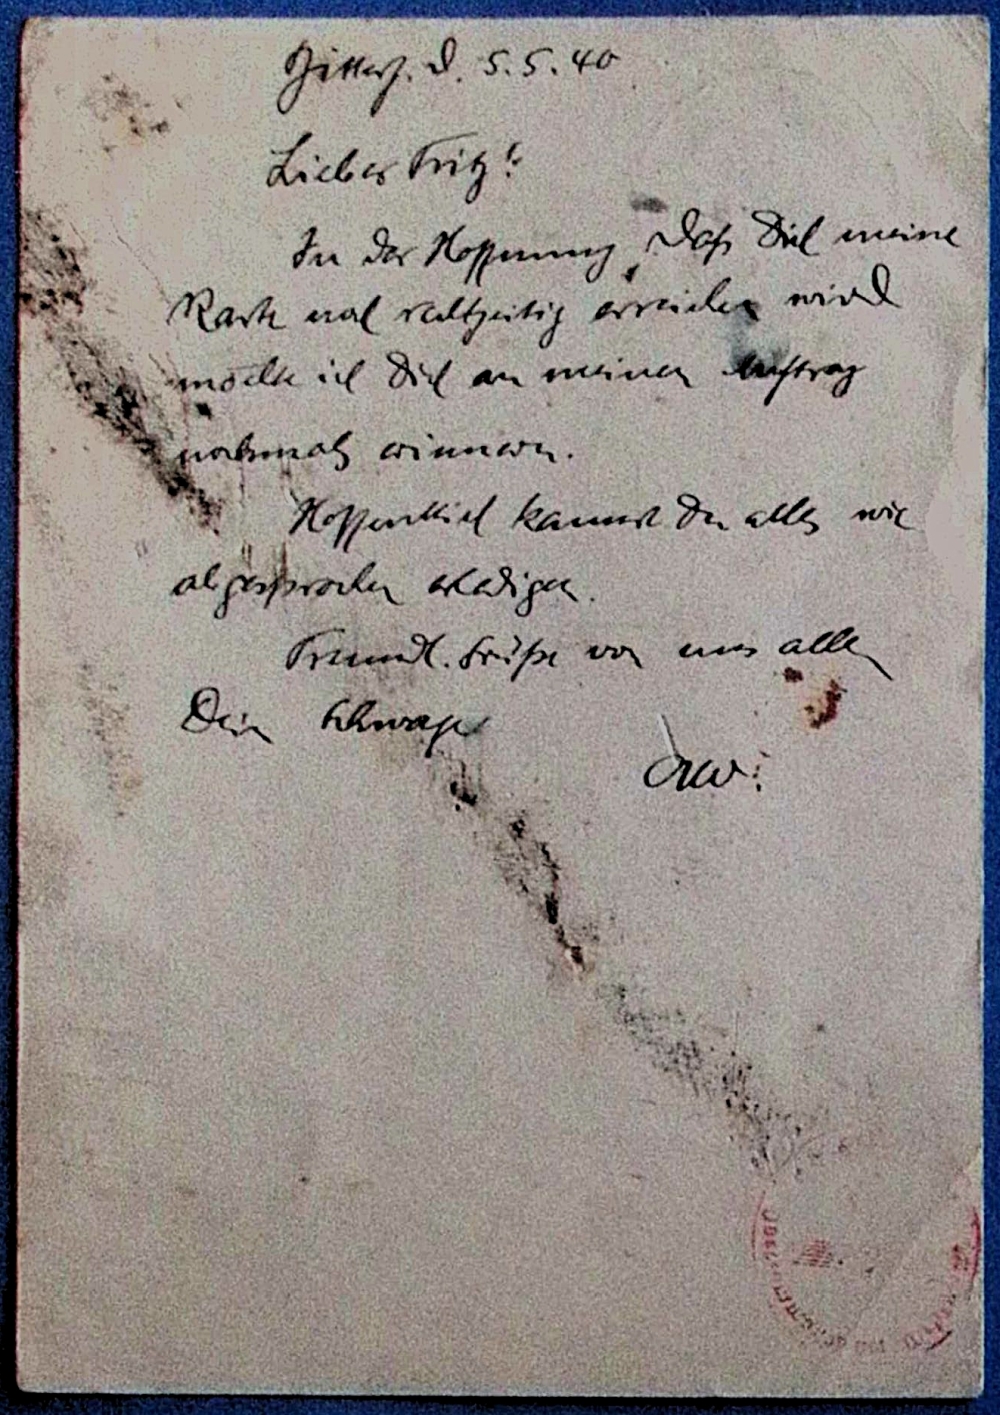 Bitterf. d. 5.5.40
Lieber Fritz!
In der Hoffnung, daß Dich meine
Karte noch rechtzeitig erreichen wird
möchte ich Dich an meinen Auftrag
nochmals erinnern.
Hoffentlich kannst Du alles wie
abgesprochen erledigen.
Freundl. Grüße von uns allen
Dein Schwager